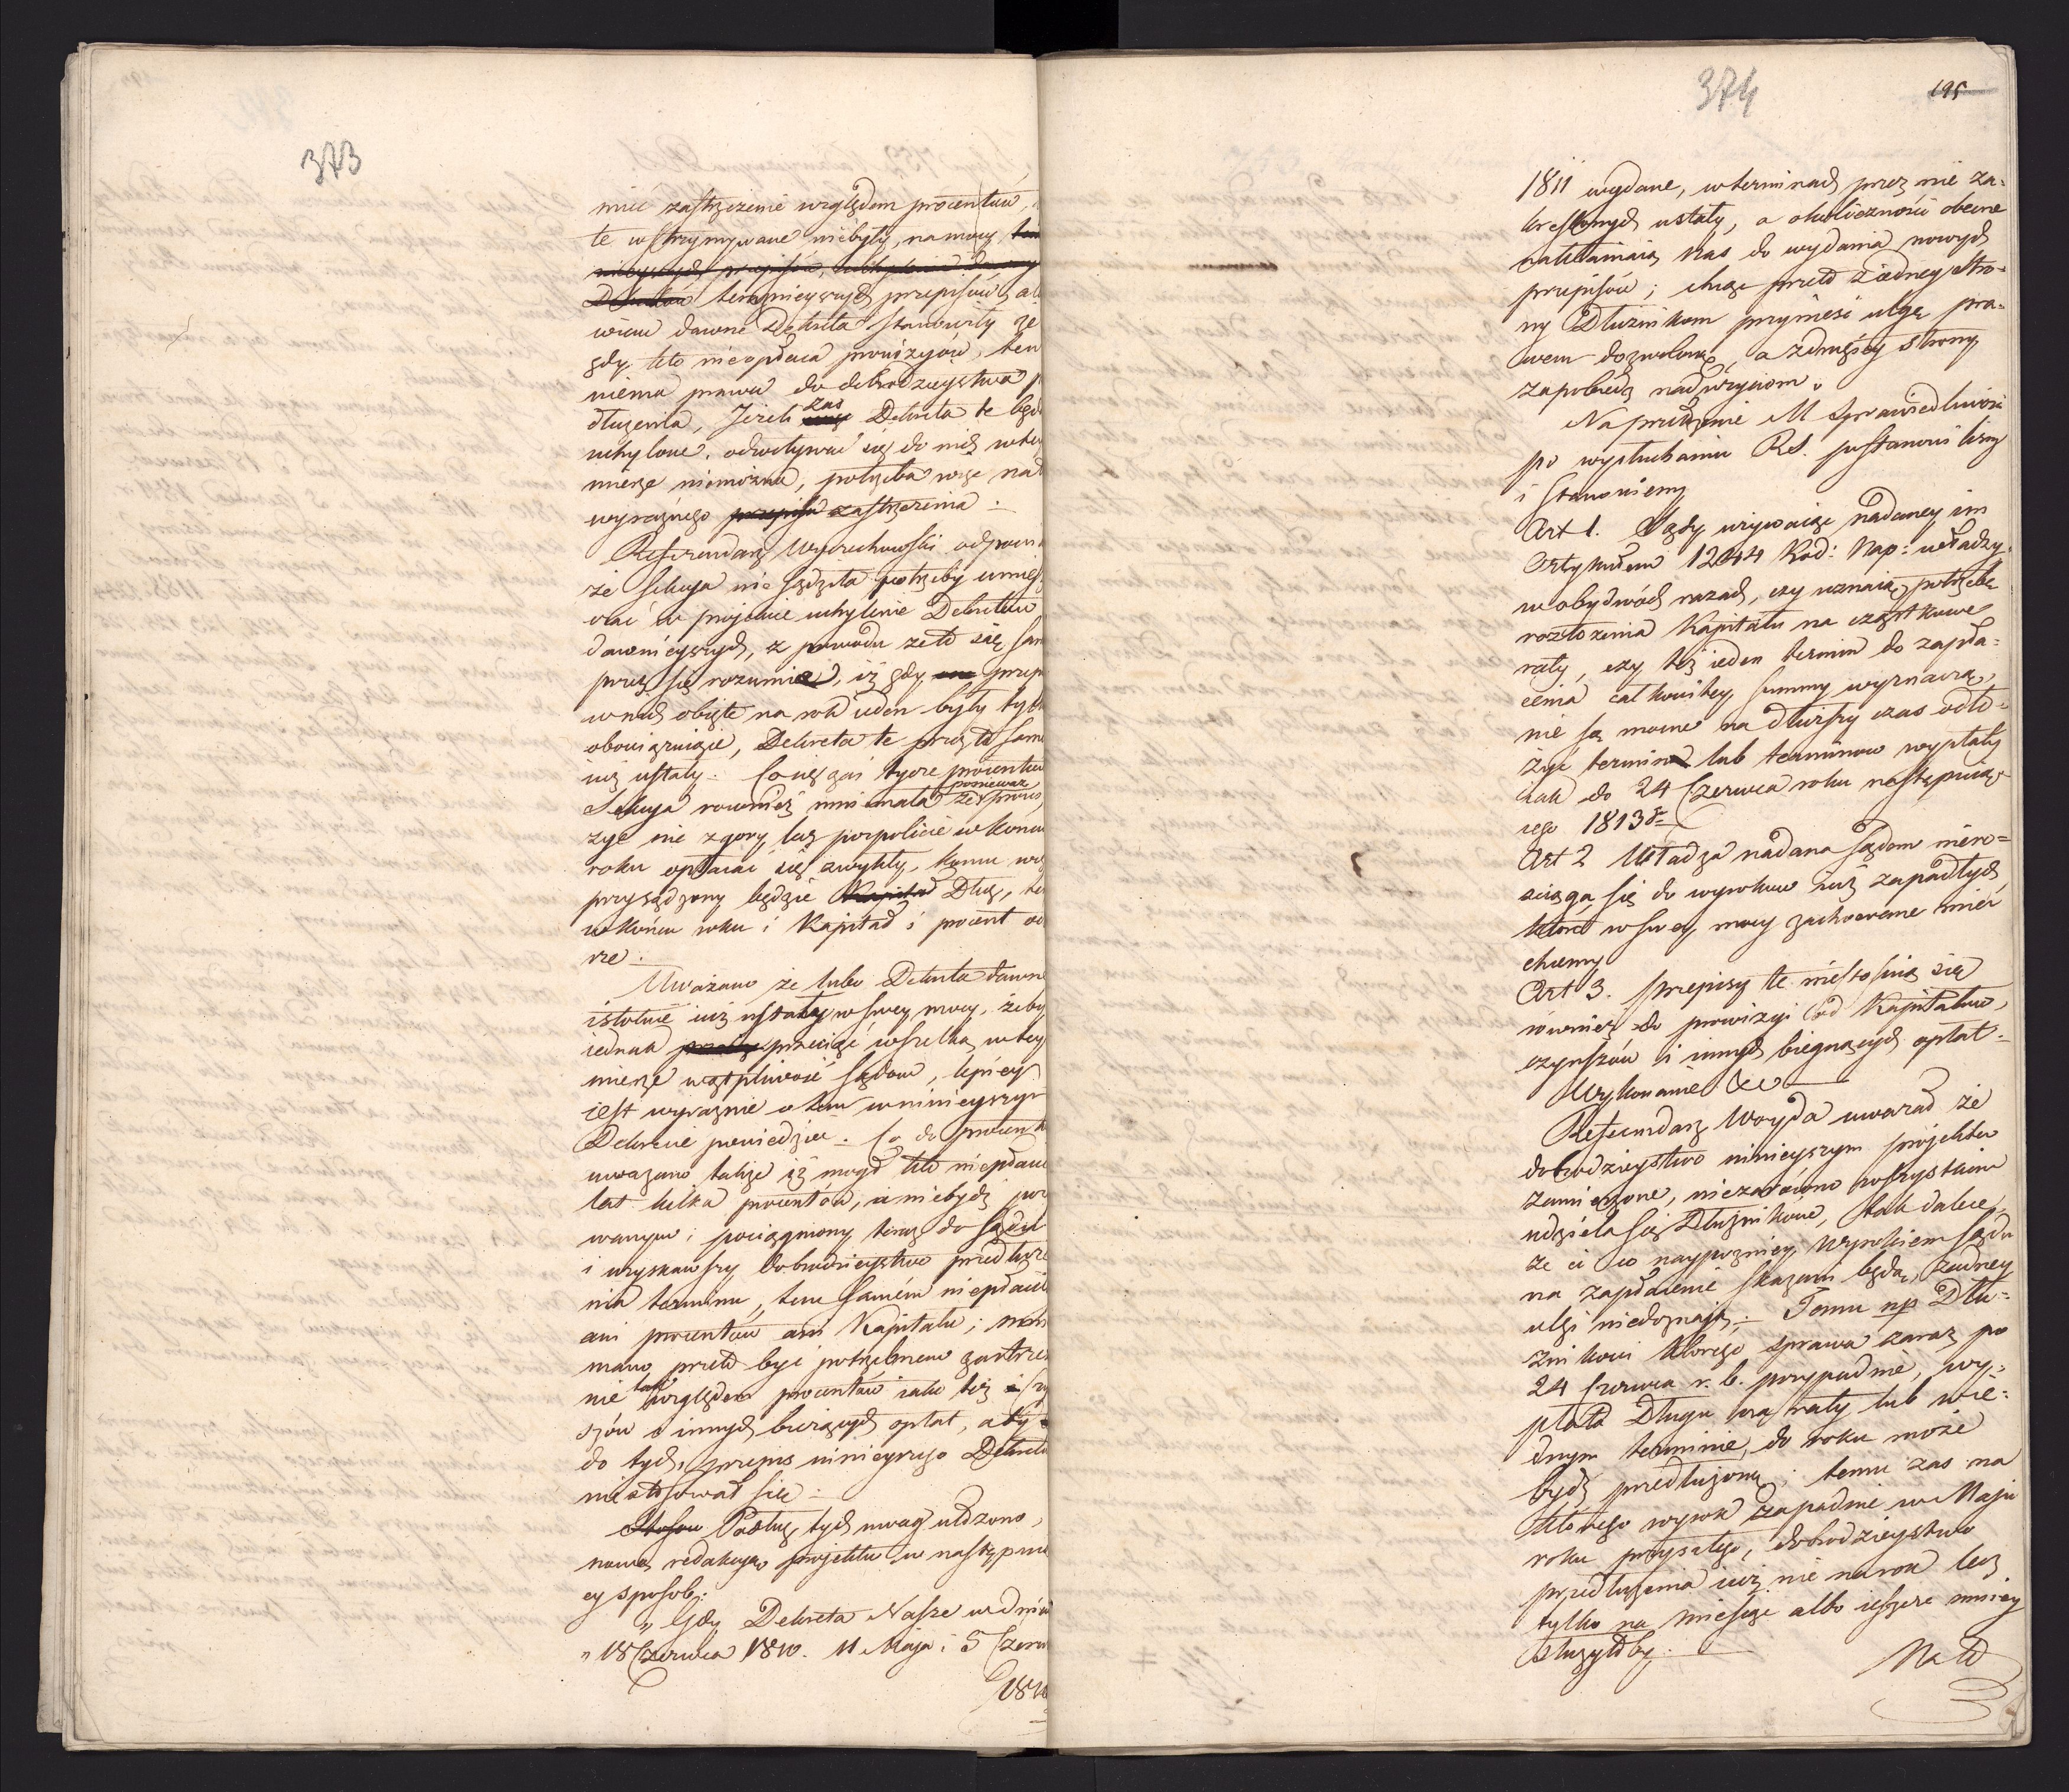 373
mieć zastrzeżenie względem procentów,
te wstrzymywane niebyły, na mocy
teraznieyszych przepisów, al
wiem dawne Dekreta stanowiły że
gdy kto nieopłaca prowizyów, ten
niema prawa do dobrodzieystwa p
dłużenia, Jeżeli zaś Dekreta te będą
uchylone, odwoływać się do nich w tey
mierze niemożna, potrzeba więc na
wyraźnego zastrzeżenia.
Referendarz Wyczechowski odpowi
że Sekcya nie sądziła potrzeby umies
czać w projekcie uchylenie Dekretów
dawnieyszych, z powodu że to się sam
przez się rozumie, iż gdy przep
w nich obięte na rok ieden były tylk
obowiązuiące, Dekreta te przez to samo
iuż ustały. Co się zaś tycze procentów
Sekcya rownież mniemała że ponieważ prowi
zye nie z gory, lecz pospolicie w końcu
roku opłacać się zwykły, komu wię
przysądzony będzie Dług, te
w końcu roku i Kapitał i procent od
rze.
Uważano że lubo Dekreta dawne
istotnie iuż ustały w swey mocy, żeby
iednak przeciąć wszelką w tey
mierze wątpliwość Sądom, lepiey
iest wyraźnie o tem w ninieyszym
Dekrecie powiedzieć. Co do procentów
uważano także iż mogł kto niepłacić
lat kilka procentów, a niebydź poz
wanym; pociągniony teraz do Sądu
i uzyskawszy dobrodzieystwo przedłuże
nia terminu, tem samém niepłacił
ani procentów ani Kapitału; mnie
mano przeto być potrzebnem zastrzeże
nie tak względem procentów iako też i czyn
szów i innych bieżących opłat, aby
do tych, przepis ninieyszego Dekretu
niestosował się.
Podług tych uwag ułożono
nową redakcyą projektu w następuią
cy sposob:
„ Gdy Dekreta Nasze w dniu
„ 18 Czerwca 1810. 11 Maja i 5 Czerw
1811
374
195
1811 wydane, w terminach przez nie za-
kreślonych ustały, a okoliczności obecne
nakłaniaią Nas do wydania nowych
przepisów; chcąc przeto z iedney stro-
ny Dłużnikom przynieść ulgę pra-
wem dozwoloną, a z drugiéy strony
zapobiedz nadużyciom.
Na przełożenie M Sprawiedliwości
po wysłuchaniu R.S. postanowiliśmy
i stanowiemy
Art 1. Sądy używaiąc nadaney im
Artykułem 1244 Kod: Nap: władzy,
w obydwóch razach, czy uznaią potrzebę
rozłożenia Kapitału na cząstkowe
raty, czy też ieden termin do zapła-
cenia całkowitey summy wyznaczą,
nie są mocne na dłuższy czas odło-
żyć termin lub terminow wypłaty
iak do 24 Czerwca roku następuią-
cego 1813 r.
Art 2 Władza nadana Sądom niero-
sciąga się do wyrokow iuż zapadłych
które w swey mocy zachowane mieć
chcemy
Art 3. Przepisy te niestosuią się
również do prowizyi od Kapitałów,
czynszów i innych biegnących opłat.
Wykonanie &c
Referendarz Woyda uważał że
dobrodzieystwo ninieyszym projektem
zamierzone, niezarówno wszystkim
udziela się Dłużnikom, tak dalece,
że ci co naypoźniey Wyrokiem Sądu
na zapłacenie skazani będą, żadney
ulgi niedoznaią. Temu np Dłu-
żnikowi ktorego sprawa zaraz po
24 Czerwca r. b. przypadnie, wy-
płata Długu na raty lub w ie-
dnym terminie, do roku może
bydź przedłużona; temu zaś na
którego wyrok zapadnie w Maju
roku przyszłego, dobrodzieystwo
przedłużenia iuż nie na rok lecz
tylko na miesiąc albo ieszcze mniey
służyłoby.
Na to